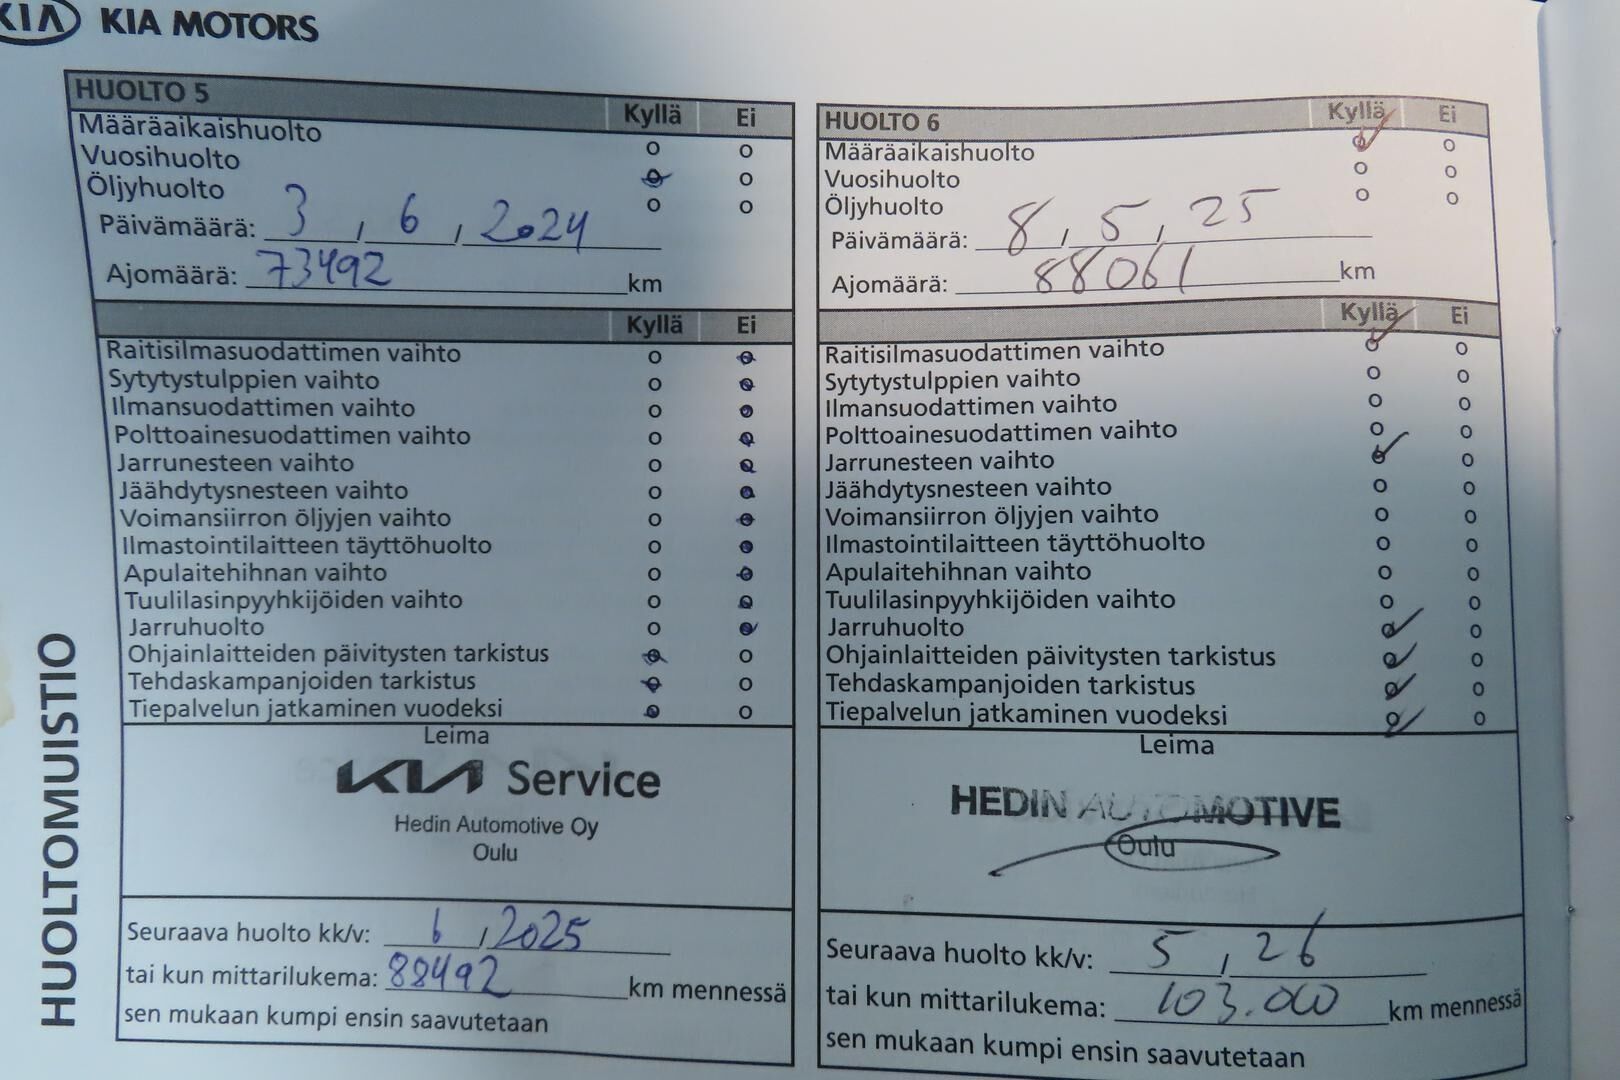 KIA KIA MOTORS
HUOLTOMUISTIO
HUOLTO 5 Kyllä Ei
Määräaikaishuolto o o
Vuosihuolto o o
Öljyhuolto o o
Päivämäärä: 3 , 6 , 2024
Ajomäärä: 73492 km
Kyllä Ei
Raitisilmasuodattimen vaihto o o
Sytytystulppien vaihto o o
Ilmansuodattimen vaihto o o
Polttoainesuodattimen vaihto o o
Jarrunesteen vaihto o o
Jäähdytysnesteen vaihto o o
Voimansiirron öljyjen vaihto o o
Ilmastointilaitteen täyttöhuolto o o
Apulaitehihnan vaihto o o
Tuulilasinpyyhkijöiden vaihto o o
Jarruhuolto o o
Ohjainlaitteiden päivitysten tarkistus o o
Tehdaskampanjoiden tarkistus o o
Tiepalvelun jatkaminen vuodeksi o o
Leima
KIA Service
Hedin Automotive Oy
Oulu
Seuraava huolto kk/v: 6 , 2025
tai kun mittarilukema: 88492 km mennessä
sen mukaan kumpi ensin saavutetaan
HUOLTO 6 Kyllä Ei
Määräaikaishuolto o o
Vuosihuolto o o
Öljyhuolto o o
Päivämäärä: 8 , 5 , 25
Ajomäärä: 88061 km
Kyllä Ei
Raitisilmasuodattimen vaihto o o
Sytytystulppien vaihto o o
Ilmansuodattimen vaihto o o
Polttoainesuodattimen vaihto o o
Jarrunesteen vaihto o o
Jäähdytysnesteen vaihto o o
Voimansiirron öljyjen vaihto o o
Ilmastointilaitteen täyttöhuolto o o
Apulaitehihnan vaihto o o
Tuulilasinpyyhkijöiden vaihto o o
Jarruhuolto o o
Ohjainlaitteiden päivitysten tarkistus o o
Tehdaskampanjoiden tarkistus o o
Tiepalvelun jatkaminen vuodeksi o o
Leima
HEDIN AUTOMOTIVE
Oulu
Seuraava huolto kk/v: 5 , 26
tai kun mittarilukema: 103.000 km mennessä
sen mukaan kumpi ensin saavutetaan